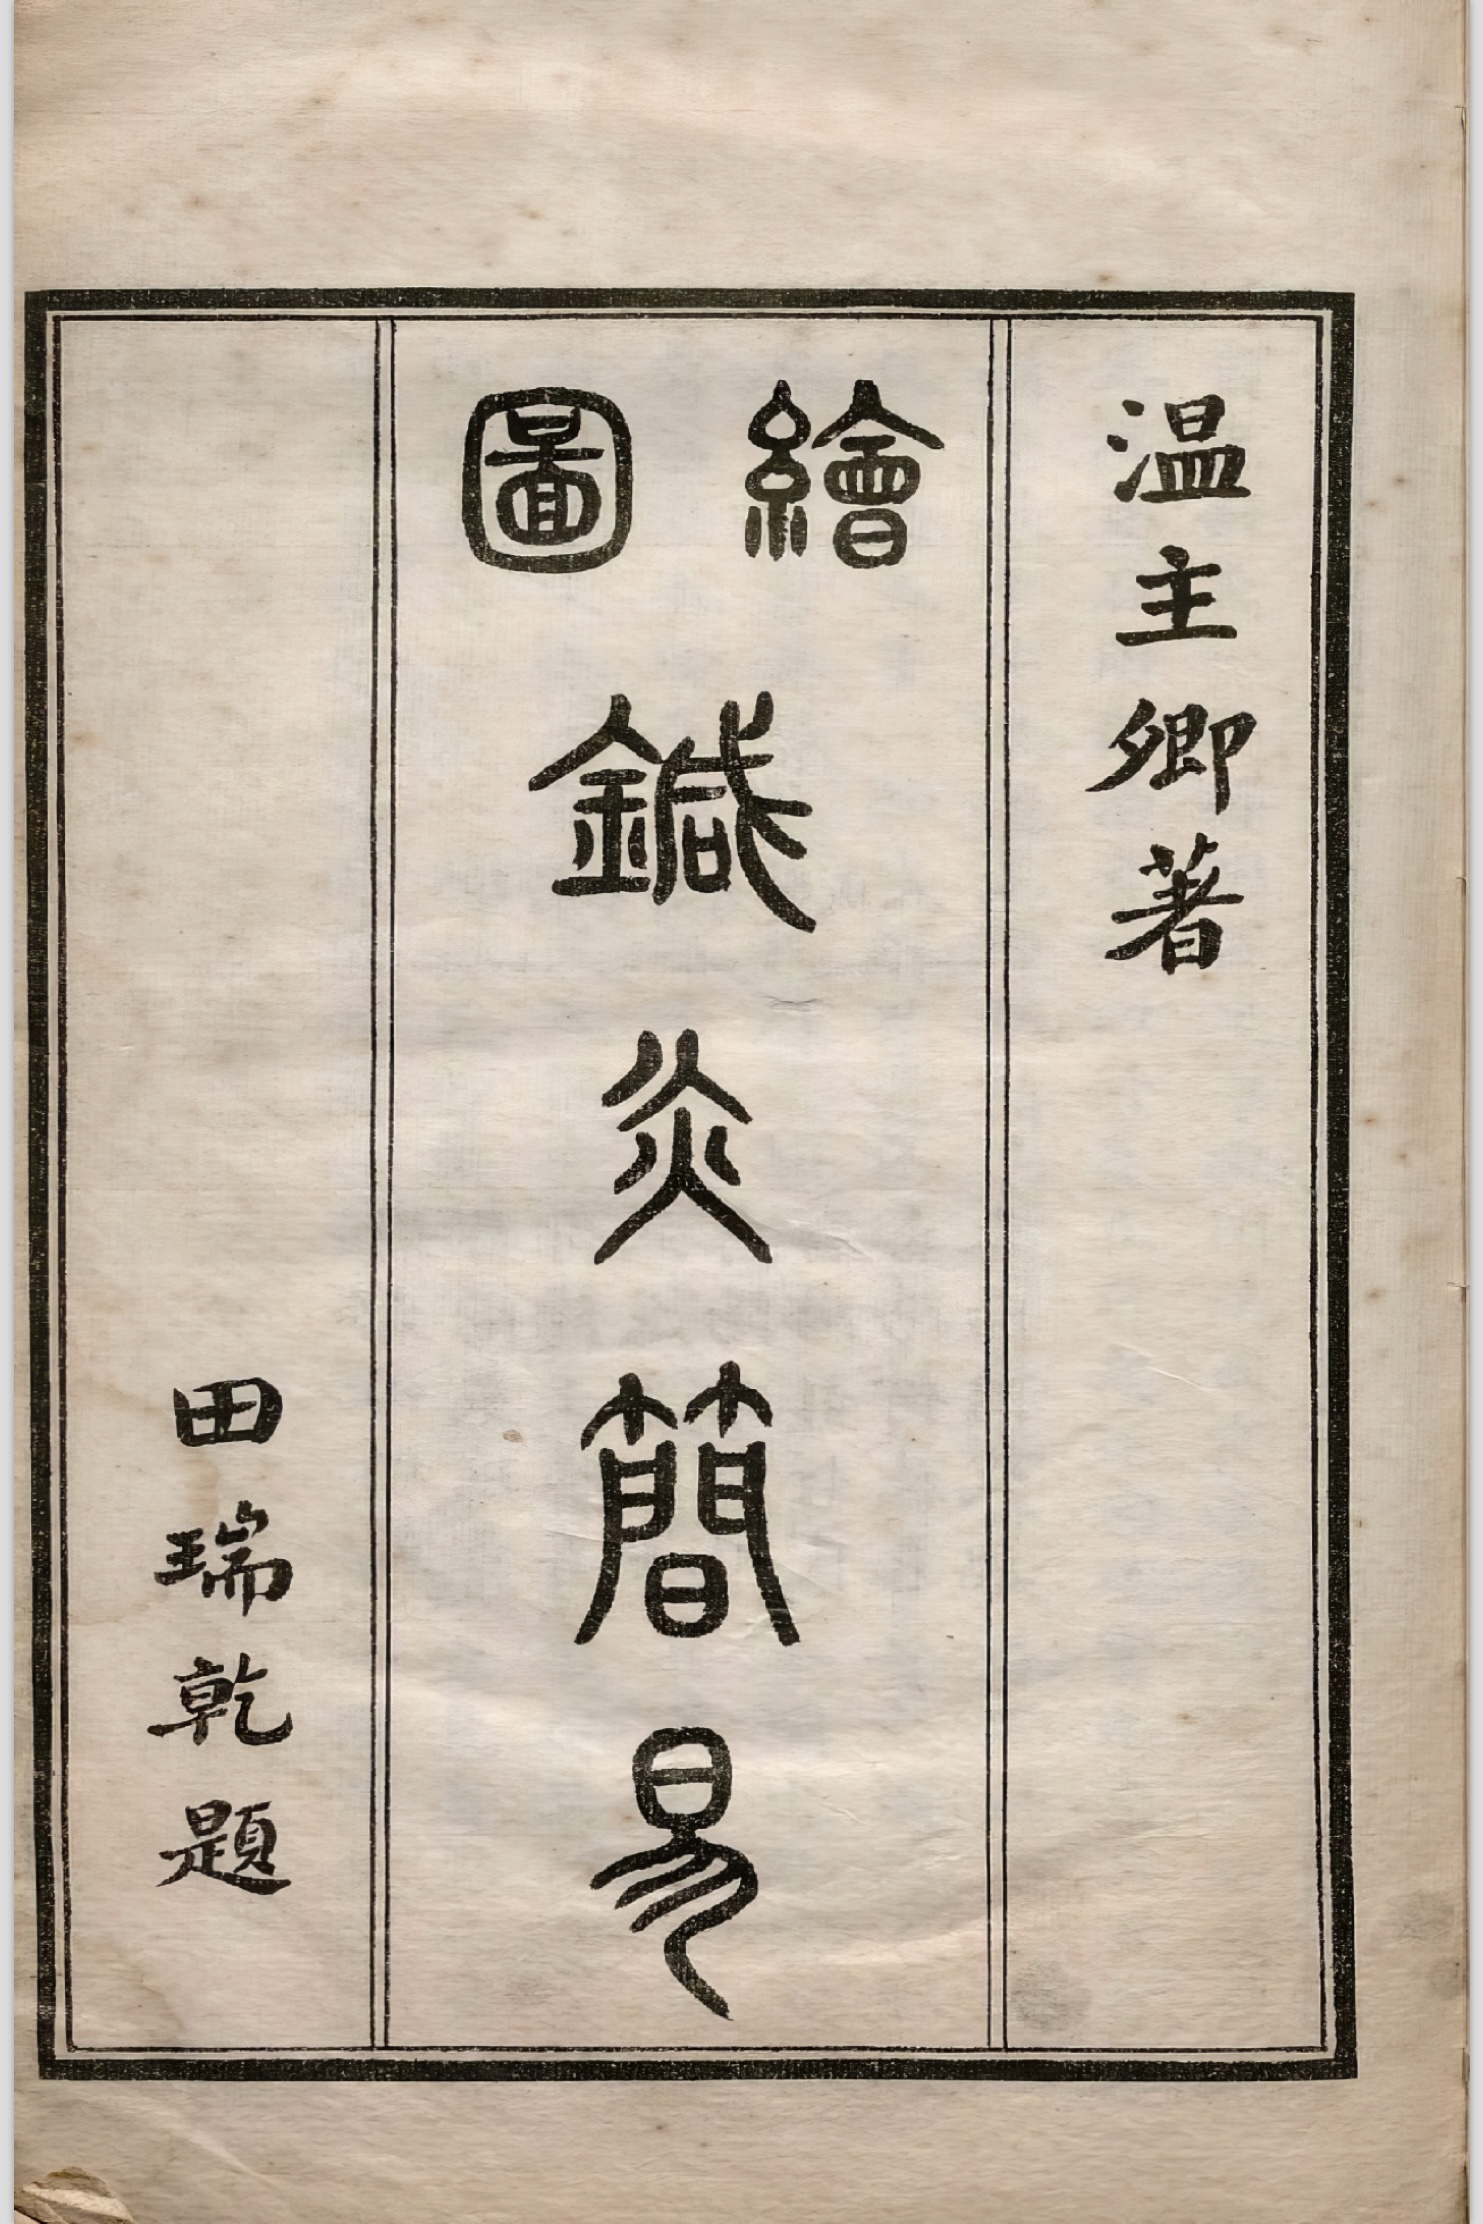 温主卿著
繪圖
鍼灸簡易
田瑞乾題